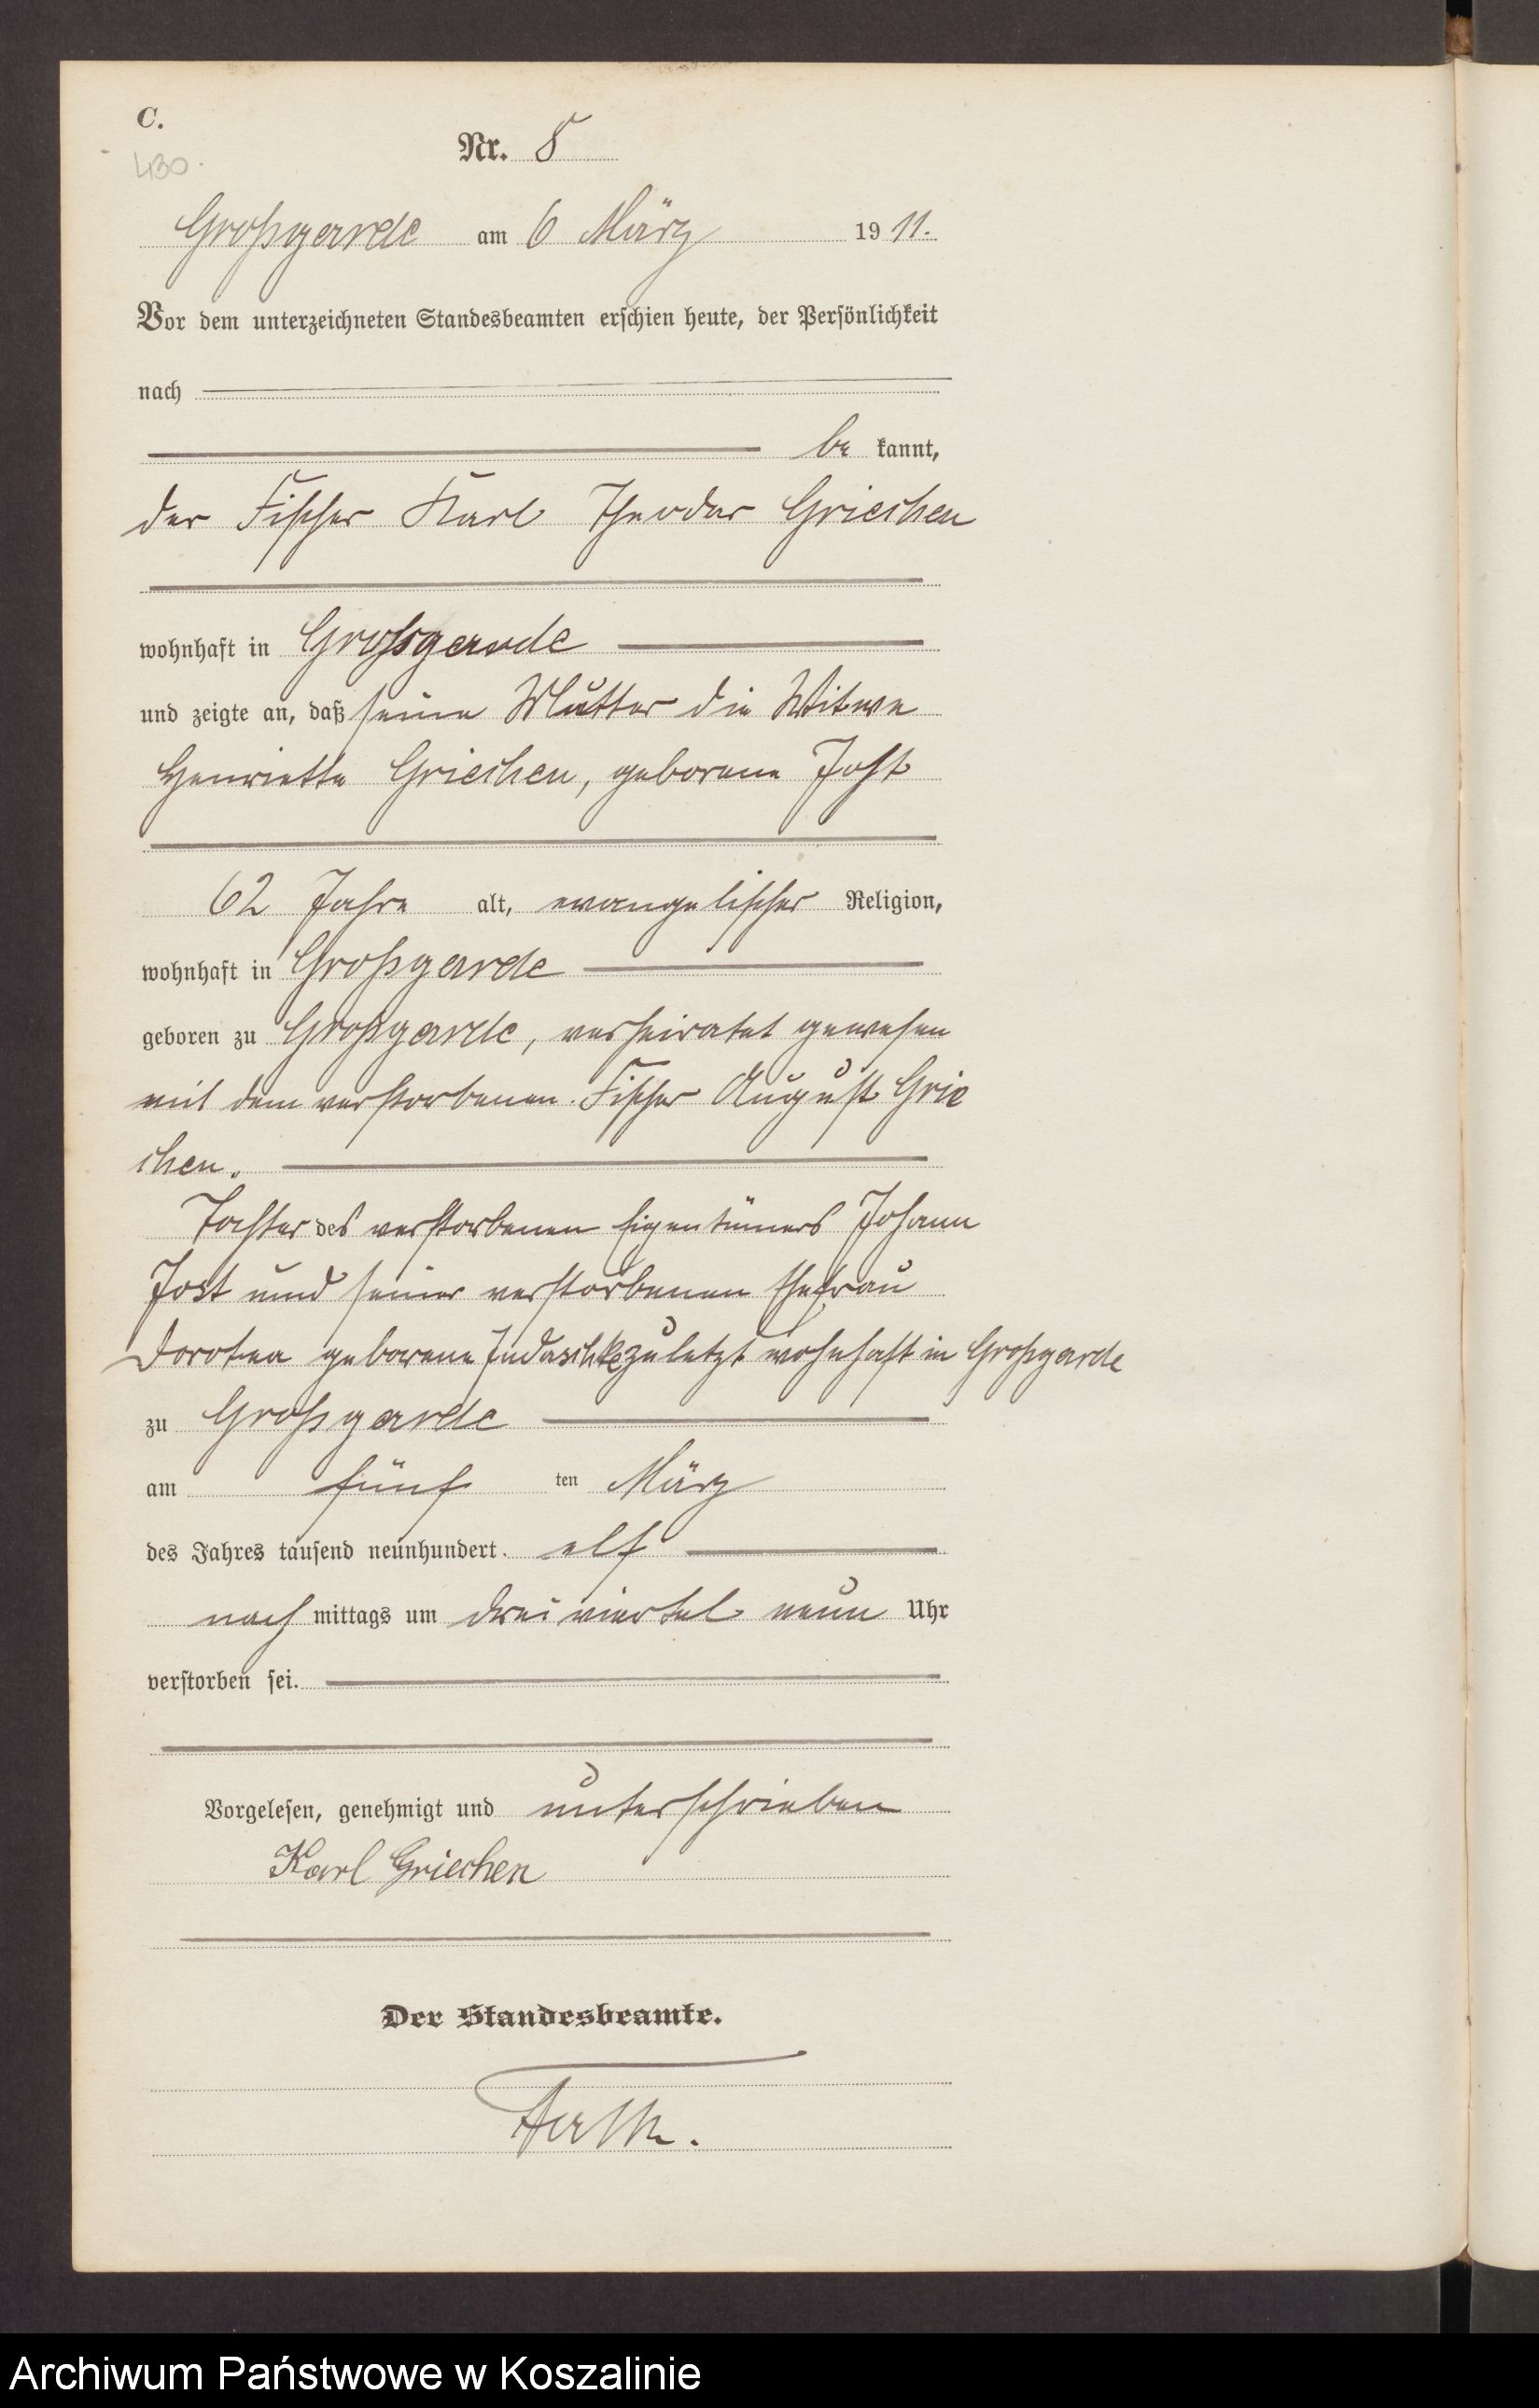 C.
430.
Nr. 8
Großgarde am 6 März 1911.
Vor dem unterzeichneten Standesbeamten erschien heute, der Persönlichkeit
nach
be kannt,
der Fischer Karl Theodor Griechen
wohnhaft in Großgarde
und zeigte an, daß seine Mutter die Witwe
Henriette Griechen, geborene Jost
62 Jahre alt, evangelischer Religion,
wohnhaft in Großgarde
geboren zu Großgarde, verheiratet gewesen
mit dem verstorbenen Fischer August Grie
chen.
Tochter des verstorbenen Eigentümers Johann
Jost und seiner verstorbenen Ehefrau
Dorotea geborene Judaschke zuletzt wohnhaft in Großgarde
zu Großgarde
am fünf ten März
des Jahres tausend neunhundert elf
nach mittags um drei viertel neun Uhr
verstorben sei.
Vorgelesen, genehmigt und unterschrieben
Karl Griechen
Der Standesbeamte.
Archiwum Państwowe w Koszalinie